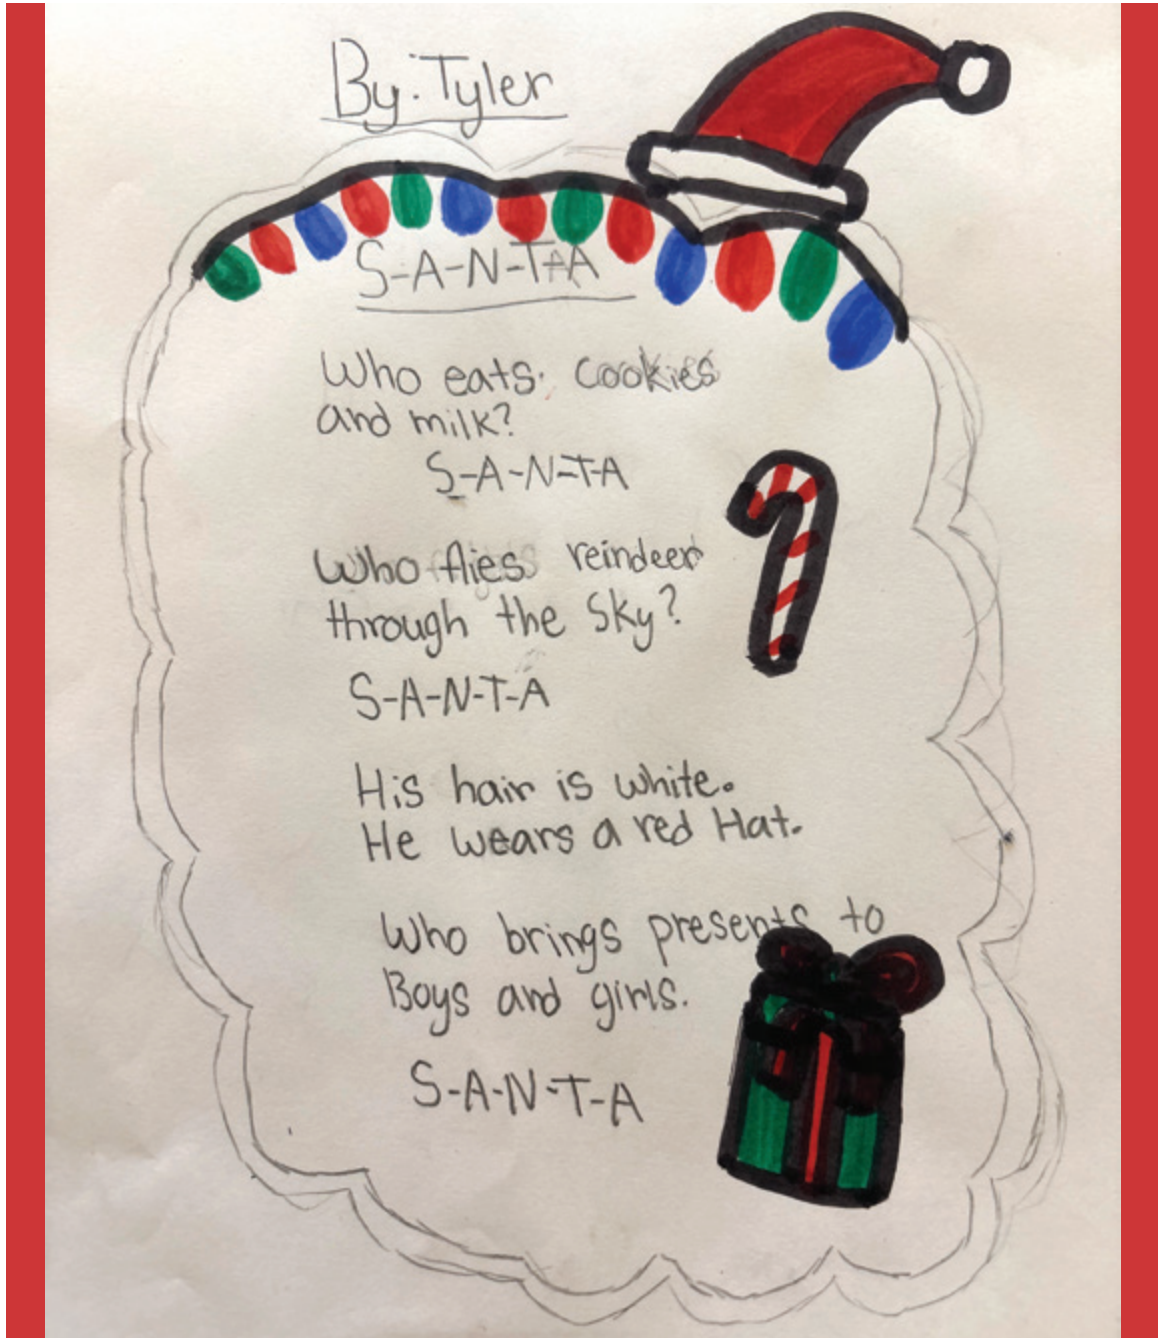 By. Tyler
S-A-N-T-A
Who eats cookies
and milk?
S-A-N-T-A
Who flies reindeer
through the sky?
S-A-N-T-A
His hair is white.
He wears a red Hat.
Who brings presents to
Boys and girls.
S-A-N-T-A